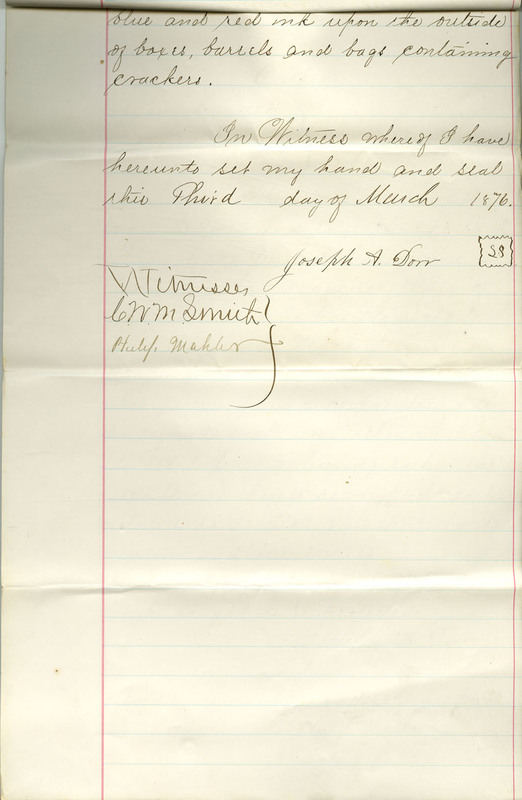 blue and red ink upon the outside
of boxes, barrels and bags containing
crackers.
In Witness whereof I have
hereunto set my hand and seal
this Third day of March 1876.
Joseph A. Dorr
LS
Witnesses
C. W. M. Smith
Philip Mahler